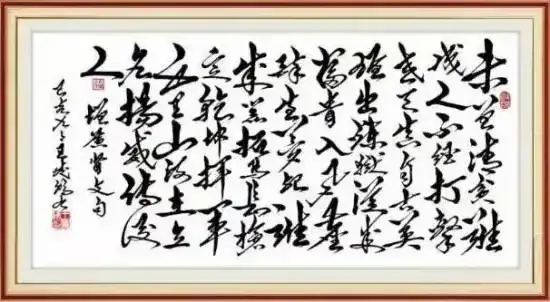 未曾清贫难
成人不经打击
老天真自古英
雄出炼狱从来
富贵入凡尘
醉生梦死谁
成器拓马长枪
定乾坤挥军
千里山河在立
名扬威传后
人
增广贤文句